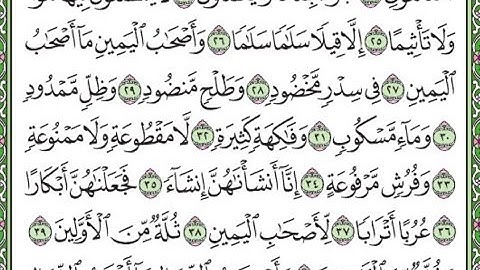 وَلَا تَأْثِيمًا ٢٥ إِلَّا قِيلًا سَلَٰمًا سَلَٰمًا ٢٦ وَأَصْحَٰبُ ٱلْيَمِينِ مَآ أَصْحَٰبُ
ٱلْيَمِينِ ٢٧ فِى سِدْرٍ مَّخْضُودٍ ٢٨ وَطَلْحٍ مَّنضُودٍ ٢٩ وَظِلٍّ مَّمْدُودٍ
٣٠ وَمَآءٍ مَّسْكُوبٍ ٣١ وَفَٰكِهَةٍ كَثِيرَةٍ ٣٢ لَّا مَقْطُوعَةٍ وَلَا مَمْنُوعَةٍ
٣٣ وَفُرُشٍ مَّرْفُوعَةٍ ٣٤ إِنَّآ أَنشَأْنَٰهُنَّ إِنشَآءً ٣٥ فَجَعَلْنَٰهُنَّ أَبْكَارًا
٣٦ عُرُبًا أَتْرَابًا ٣٧ لِّأَصْحَٰبِ ٱلْيَمِينِ ٣٨ ثُلَّةٌ مِّنَ ٱلْأَوَّلِينَ ٣٩